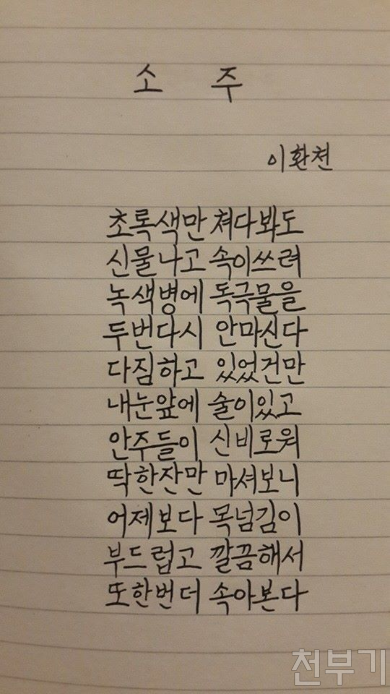 소 주
이환천
초록색만 쳐다봐도
신물나고 속이쓰려
녹색병에 독극물을
두번다시 안마신다
다짐하고 있었건만
내눈앞에 술이있고
안주들이 신비로워
딱한잔만 마셔보니
어제보다 목넘김이
부드럽고 깔끔해서
또한번더 속아본다
천부기